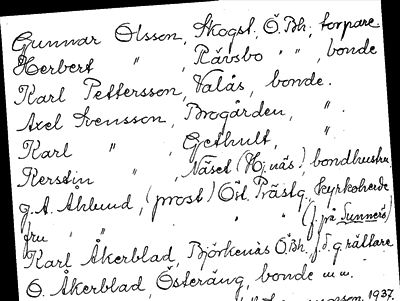 Gunnar Olsson, Skogst. Ö.Bh, torpare.
Herbert " , Rävsbo " " , bonde
Karl Pettersson, Valås, bonde.
Axel Svensson, Brogården, " .
Karl " , Gethult, "
Kerstin " , Näset (Hj.näs), bondhustru
g.A. Åhlund, (prost) Öst. Prästg., kyrkoherde
fru " " " " (f. på Sunnerö)
Karl Åkerblad, Björkenäs Ö.Bh. f.d. grällare
O. Åkerblad, Österäng, bonde m.m.
1937.